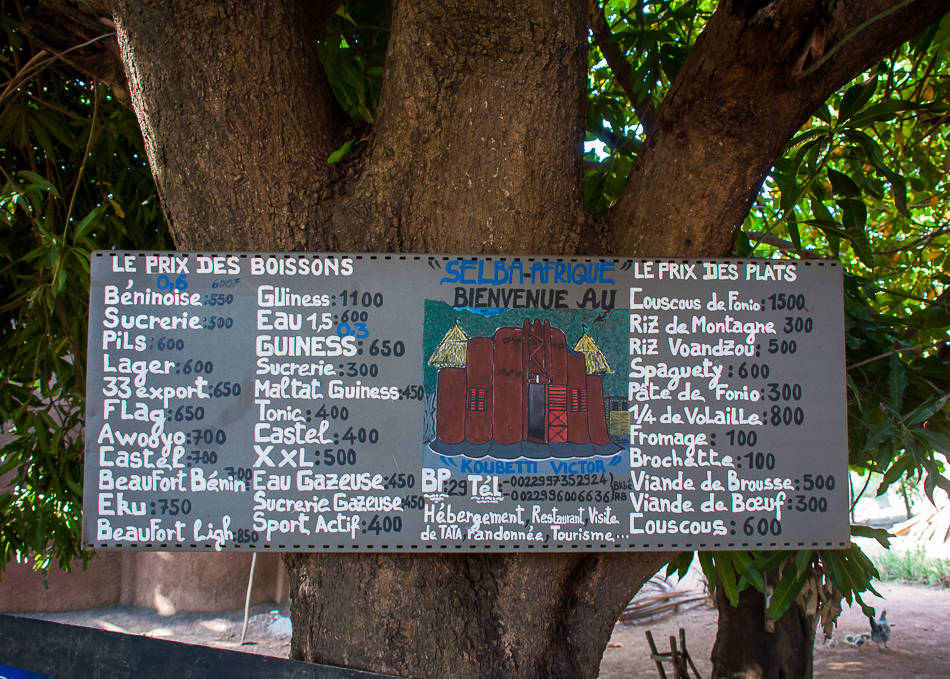 LE PRIX DES BOISSONS
0,6 600F
Béninoise: 550
Sucrerie: 500
Pils: 600
Lager: 600
33 export: 650
Flag: 650
Awooyo: 700
Castel: 700
Beaufort Bénin: 700
Eku: 750
Beaufort Ligh: 850
GUiness: 1100
Eau 1,5: 600
0,3
GUINESS: 650
Sucrerie: 300
Maltat Guiness: 450
Tonic: 400
Castel: 400
XXL: 500
Eau Gazeuse: 450
Sucrerie Gazeuse: 450
Sport Actif: 400
"SELBA-AFRIQUE"
BIENVENUE AU
"KOUBETTI VICTOR"
BP: 29 Tél 0022997352924
0022996006636
Hébergement, Restaurant, Visite
de TATA, randonnée, Tourisme,...
LE PRIX DES PLATS
Couscous de Fonio: 1500
Riz de Montagne 300
Riz Voandzou: 500
Spaguety: 600
Pâte de Fonio: 300
1/4 de Volaille: 800
Fromage: 100
Brochette: 100
Viande de Brousse: 500
Viande de Bœuf: 300
Couscous: 600